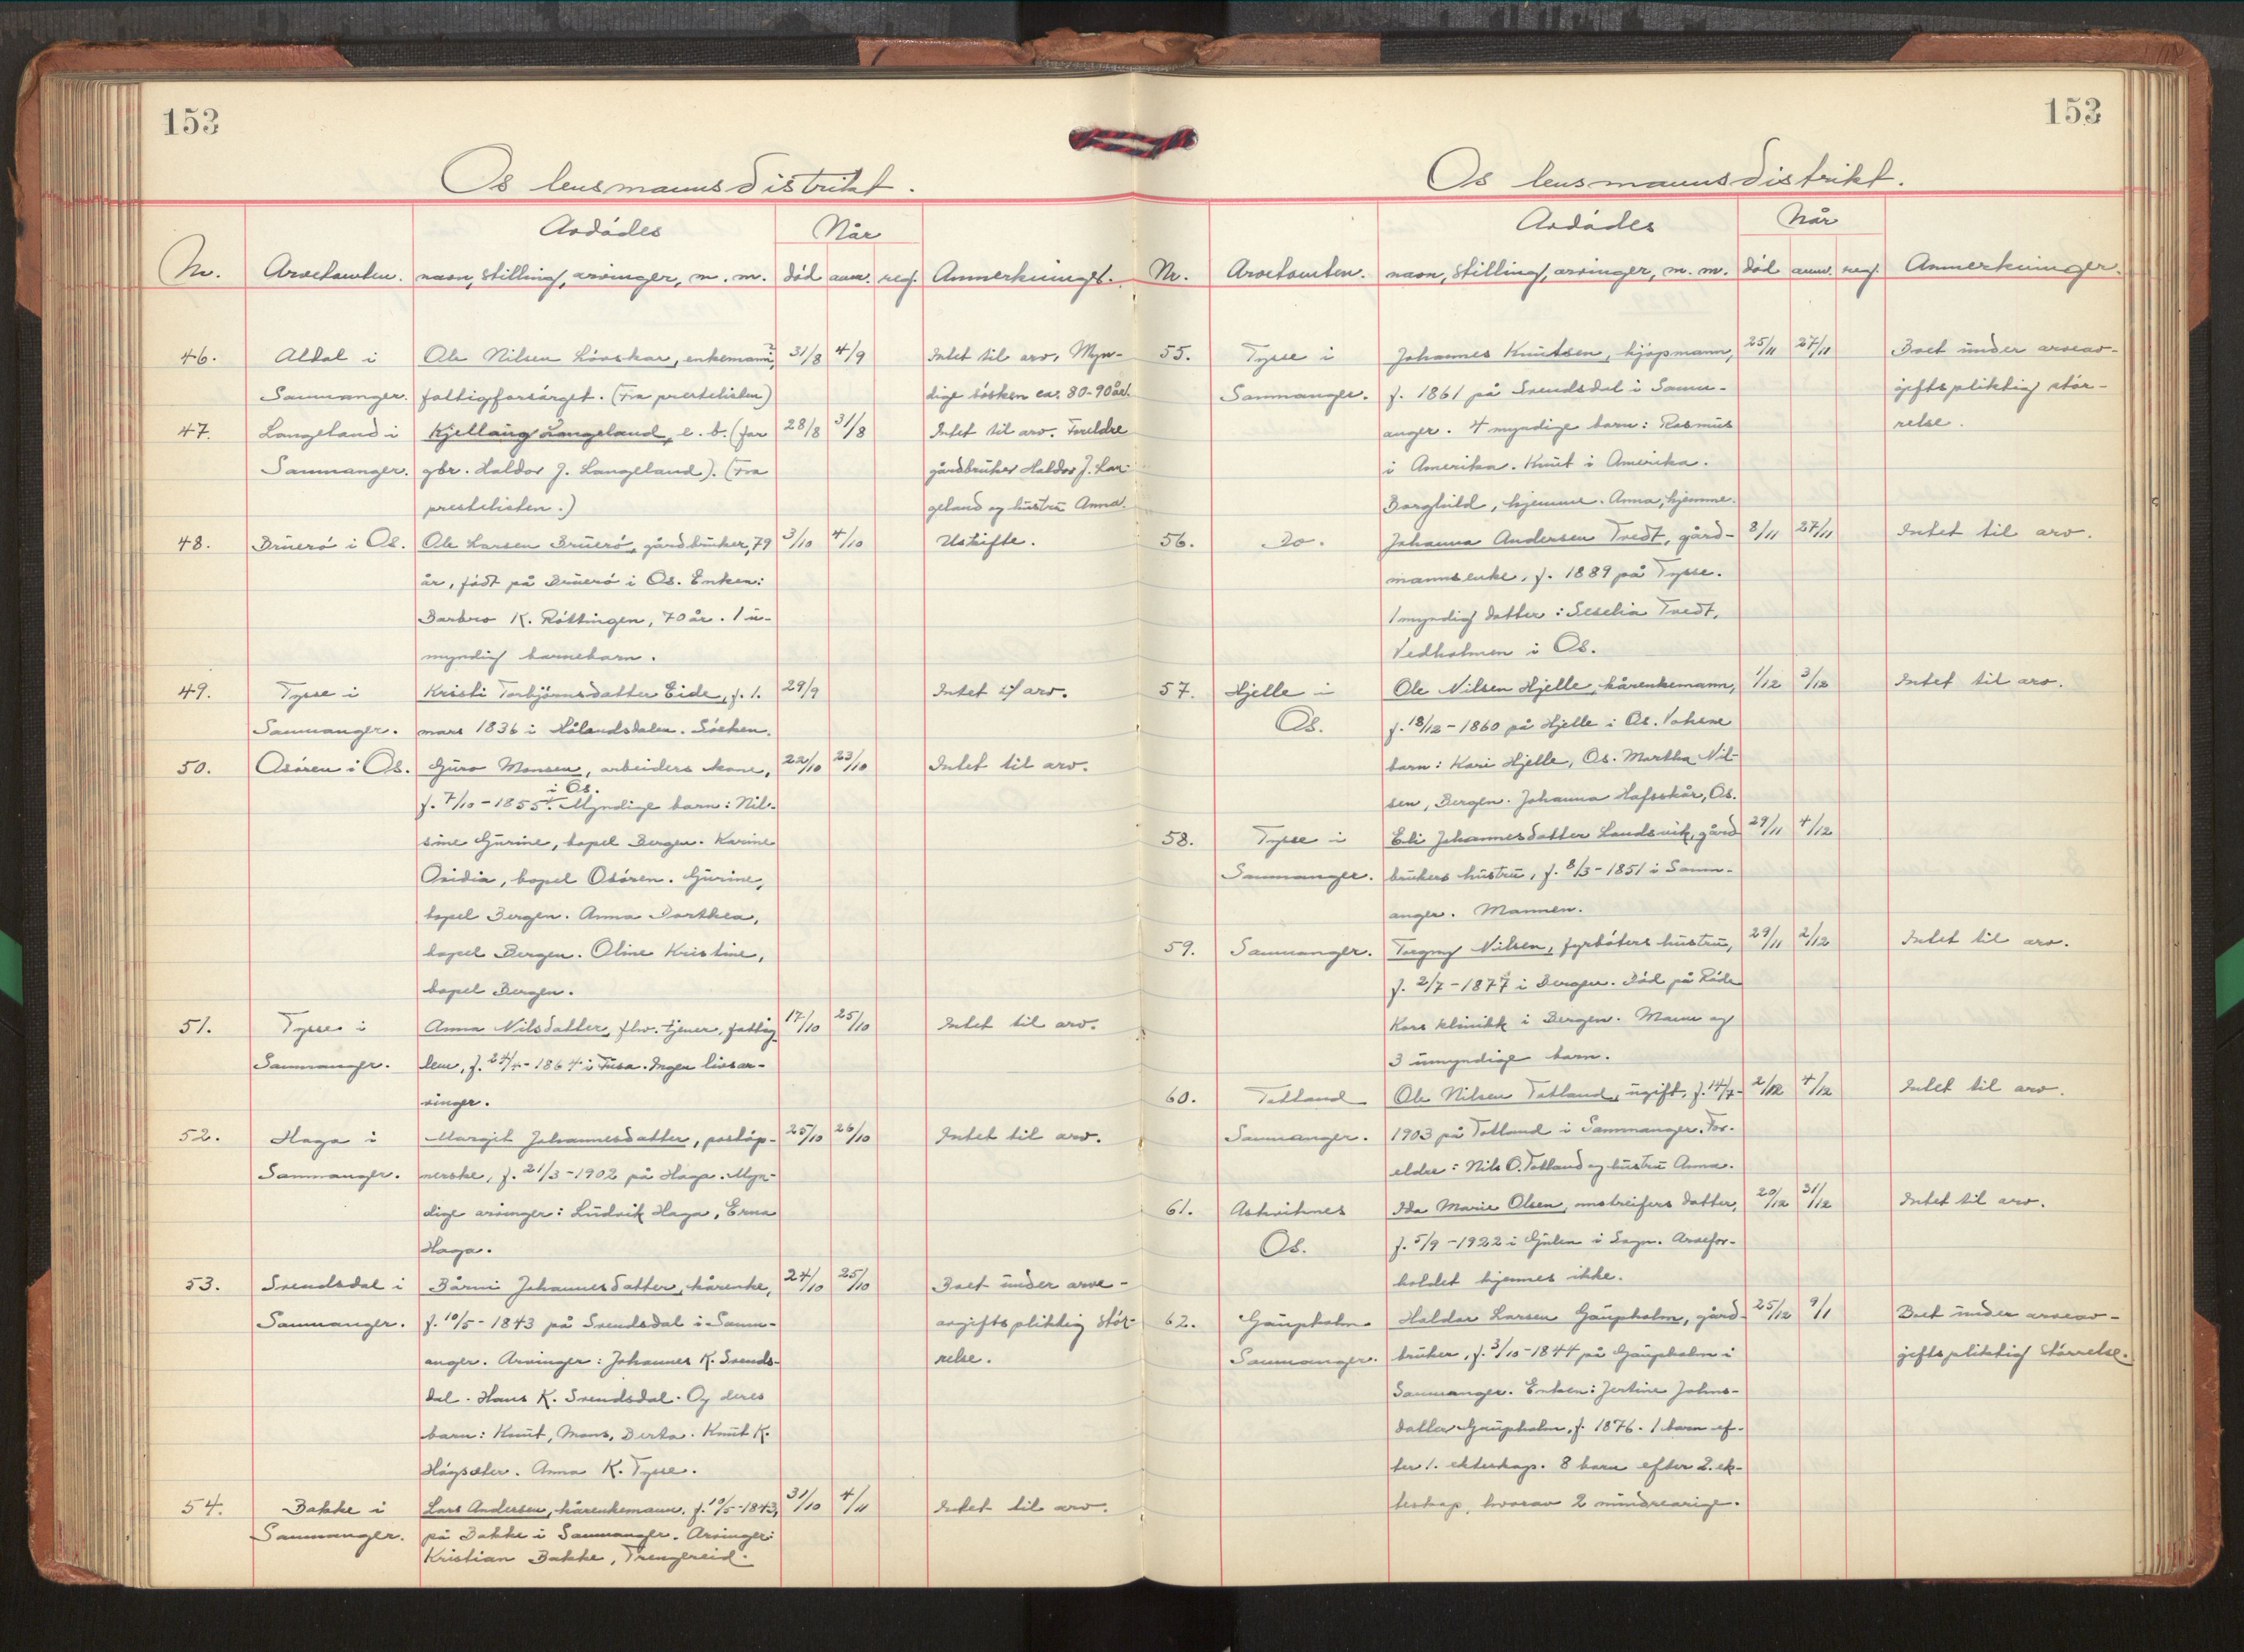 153
Os lensmannsdistrikt.
Avdødes
Når
Nr. Arvetomten. navn, stilling, arvinger, m. m. død anm. reg. Anmerkninger.
46. Aldal i Ole Nilsen Lövskar, enkemann, 31/8 4/9 Intet til arv. Myn-
Samnanger. fattigforsörget. (Fra prestelisten) dige sösken ca. 80-90 år.
47. Langeland i Kjellaug Langeland, e. b. (far 28/8 31/8 Intet til arv. Foreldre
Samnanger. gbr. Haldor J. Langeland). (Fra gårdbruker Haldor J. Lan-
prestelisten.) geland og hustru Anna.
48. Bruerö i Os. Ole Larsen Bruerö, gårdbruker, 79 3/10 4/10 Uskifte.
år, födt på Bruerö i Os. Enken:
Barbro K. Röttingen, 70 år. 1 u-
myndig barnebarn.
49. Tysse i Kristi Torbjörnsdatter Eide, f. 1. 29/9 Intet t/ arv.
Samnanger. mars 1836 i Hålandsdalen. Sösken.
50. Osören i Os. Guro Monsen, arbeiders kone, 22/10 23/10 Intet til arv.
i Os.
f. 7/10-1855. Myndige barn: Nil-
sine Gurine, bopel Bergen. Karine
Ovidia, bopel Osören. Gurine,
bopel Bergen. Anna Dorthea,
bopel Bergen. Oline Kristine,
bopel Bergen.
51. Tysse i Anna Nilsdatter, flv. tjener, fattig- 17/10 25/10 Intet til arv.
Samnanger. lem, f. 24/4-1864 i Fusa. Ingen livsar-
vinger.
52. Haga i Margit Johannesdatter, postöp- 25/10 26/10 Intet til arv.
Samnanger. nerske, f. 21/3-1902 på Haga. Myn-
dige arvinger: Ludvik Haga, Erna
Haga.
53. Svendsdal i Bårni Johannesdatter, kårenke, 24/10 25/10 Boet under arve-
Samnanger. f. 10/5-1843 på Svendsdal i Samn- avgiftspliktig stör-
anger. Arvinger: Johannes K. Svends- relse.
dal. Hans K. Svendsdal. Og deres
barn: Knut, Mons, Berta. Knut K.
Högseter. Anna K. Tysse.
54. Bakke i Lars Andersen, kårenkemann, f. 10/5-1843, 31/10 4/11 Intet til arv.
Samnanger. på Bakke i Samnanger. Arvinger:
Kristian Bakke, Trengereid.
153
Os lensmannsdistrikt.
Avdødes
Når
Nr. Arvetomten. navn, stilling, arvinger, m. m. död anm. reg. Anmerkninger.
55. Tysse i Johannes Knutsen, kjöpmann, 25/11 27/11 Boet under arveav-
Samnanger. f. 1861 på Svendsdal i Samn- giftspliktig stör-
anger. 4 myndige barn: Rasmus relse.
i Amerika. Knut i Amerika.
Borghild, hjemme. Anna, hjemme.
56. Do. Johanna Andersen Tvedt, gård- 8/11 27/11 Intet til arv.
mannsenke, f. 1889 på Tysse.
1 myndig datter: Seselia Tvedt,
Vedholmen i Os.
57. Hjelle i Ole Nilsen Hjelle, kårenkemann, 1/12 3/12 Intet til arv.
Os. f. 18/12-1860 på Hjelle i Os. Voksne
barn: Kari Hjelle, Os. Martha Nil-
sen, Bergen. Johanna Hafsskår, Os.
58. Tysse i Eli Johannesdatter Landsvik, gård- 29/11 4/12
Samnanger. brukers hustru, f. 8/3-1851 i Samn-
anger. Mannen.
59. Samnanger. Torgny Nilsen, fyrböters hustru, 29/11 2/12 Intet til arv.
f. 2/7-1877 i Bergen. Död på Röde
Kors klinikk i Bergen. Mann og
3 umyndige barn.
60. Totland Ole Nilsen Totland, ugift, f. 14/7- 2/12 4/12 Intet til arv.
Samnanger. 1903 på Totland i Samnanger. For-
eldre: Nils O. Totland og hustru Anna.
61. Askviknes Ida Marie Olsen, omstreifers datter, 20/12 31/12 Intet til arv.
Os. f. 5/9-1922 i Gulen i Sogn. Arvefor-
holdet kjennes ikke.
62. Gaupholm Haldor Larsen Gaupholm, gård- 25/12 9/1 Boet under arveav-
Samnanger. bruker, f. 3/10-1844 på Gaupholm i giftspliktig störrelse.
Samnanger. Enken: Jertine Johns-
datter Gaupholm, f. 1876. 1 barn ef-
ter 1. ekteskap. 8 barn efter 2. ek-
teskap, hvorav 2 mindreårige.